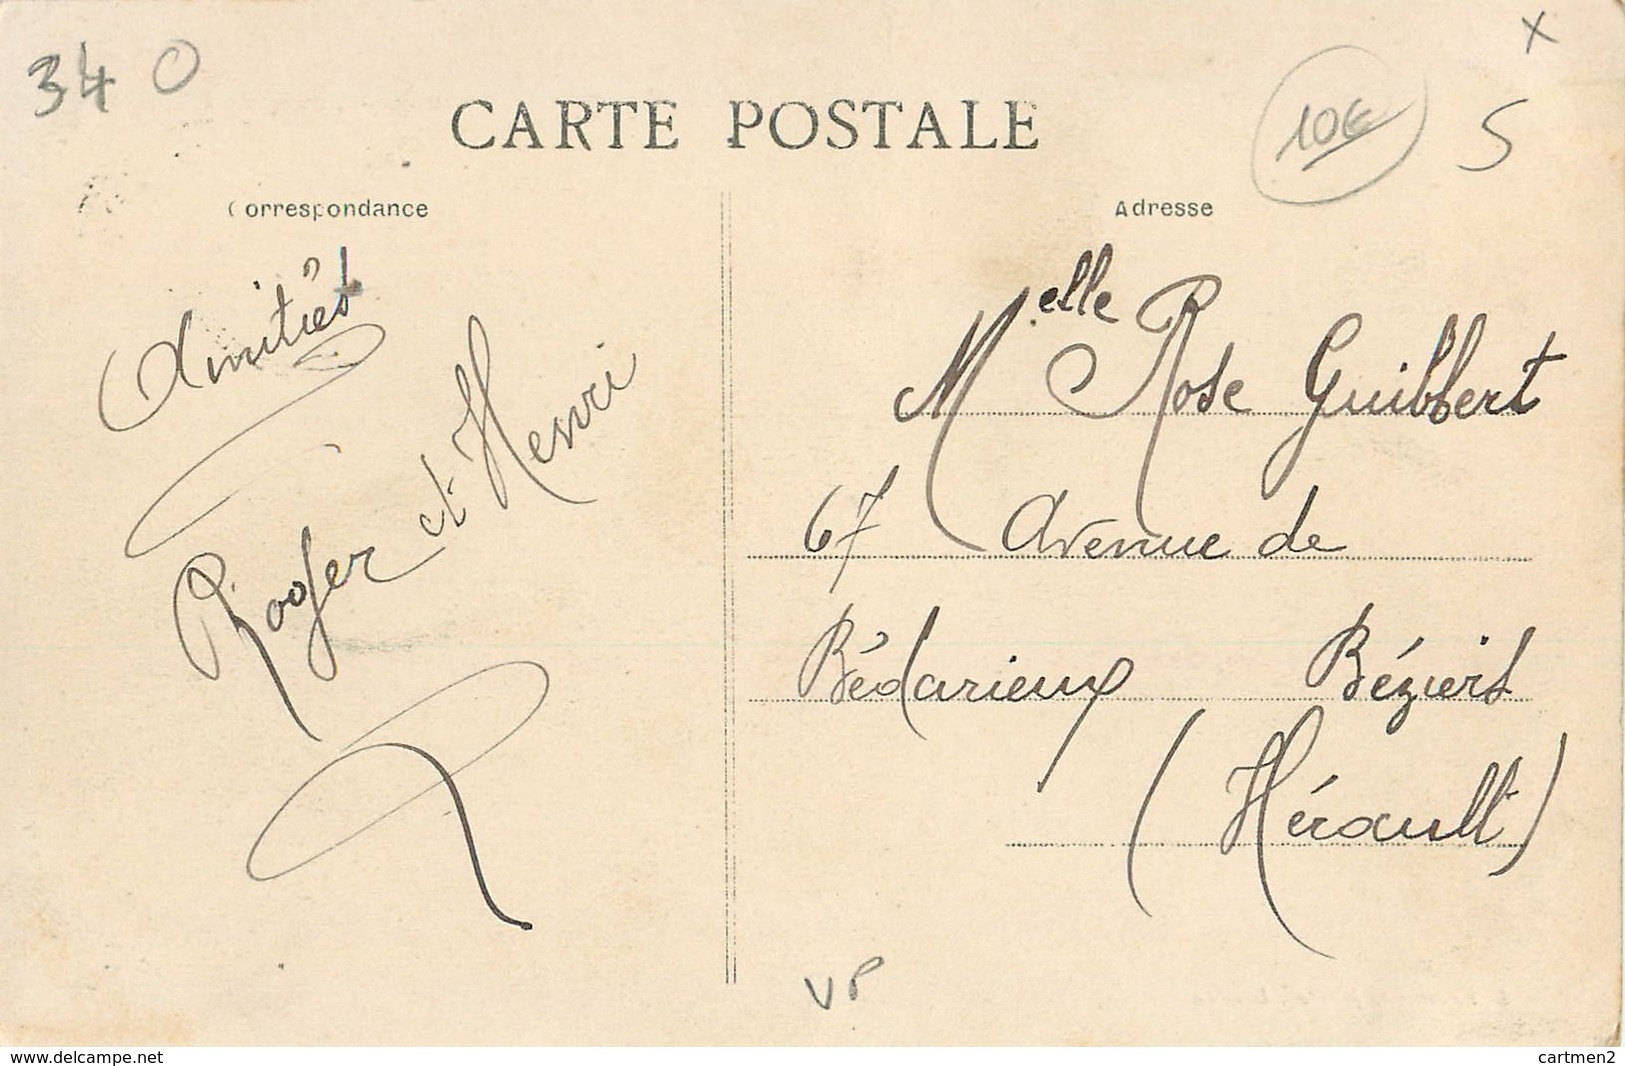 34 O
x
10€
S
CARTE POSTALE
Correspondance
Adresse
Amitiés
Roger et Henri
Melle Rose Guibbert
67 Avenue de
Bédarieux Béziers
(Hérault)
VP
www.delcampe.net
cartmen2